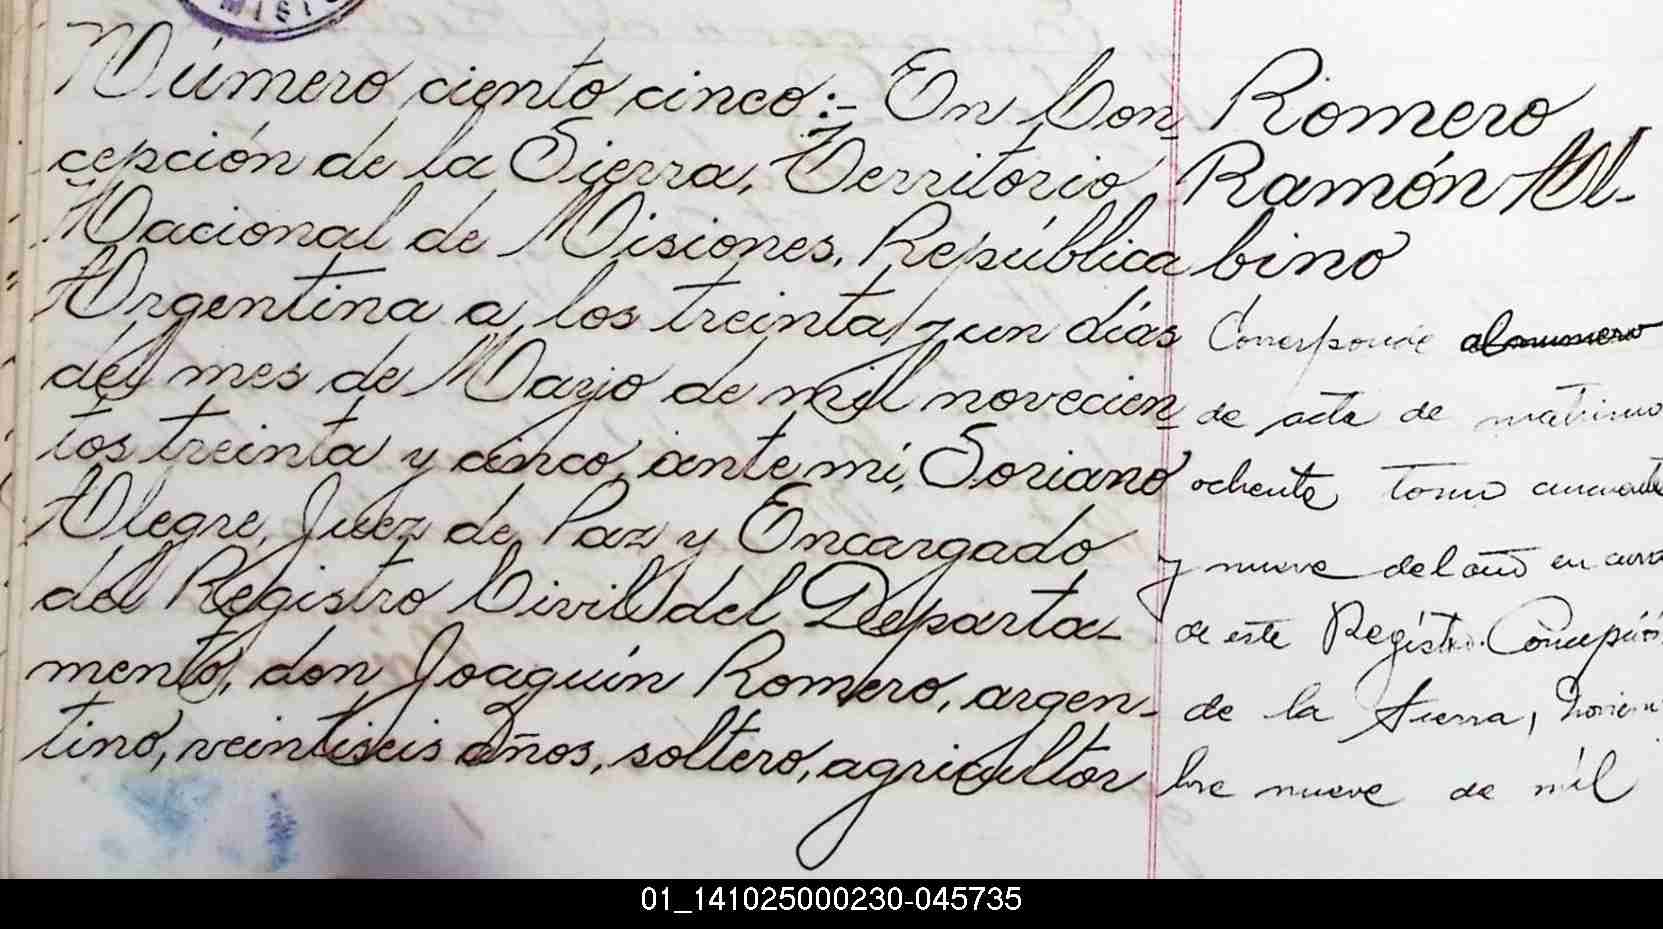 MISIO
Número ciento cinco:- En Con-
cepción de la Sierra, Territorio
Nacional de Misiones, República
Argentina a los treinta y un días
del mes de Marzo de mil novecien-
tos treinta y cinco, ante mí, Soriano
Alegre, Juez de Paz y Encargado
del Registro Civil del Departa-
mento, don Joaquín Romero, argen-
tino, veintiseis años, soltero, agricultor
Romero
Ramón Al-
bino
Corresponde al numero
de acta de matrimo
ochenta tomo cincuenta
y nueve del año en curso
de este Registro. Concepción
de la Sierra, Noviem
bre nueve de mil
01_141025000230-045735